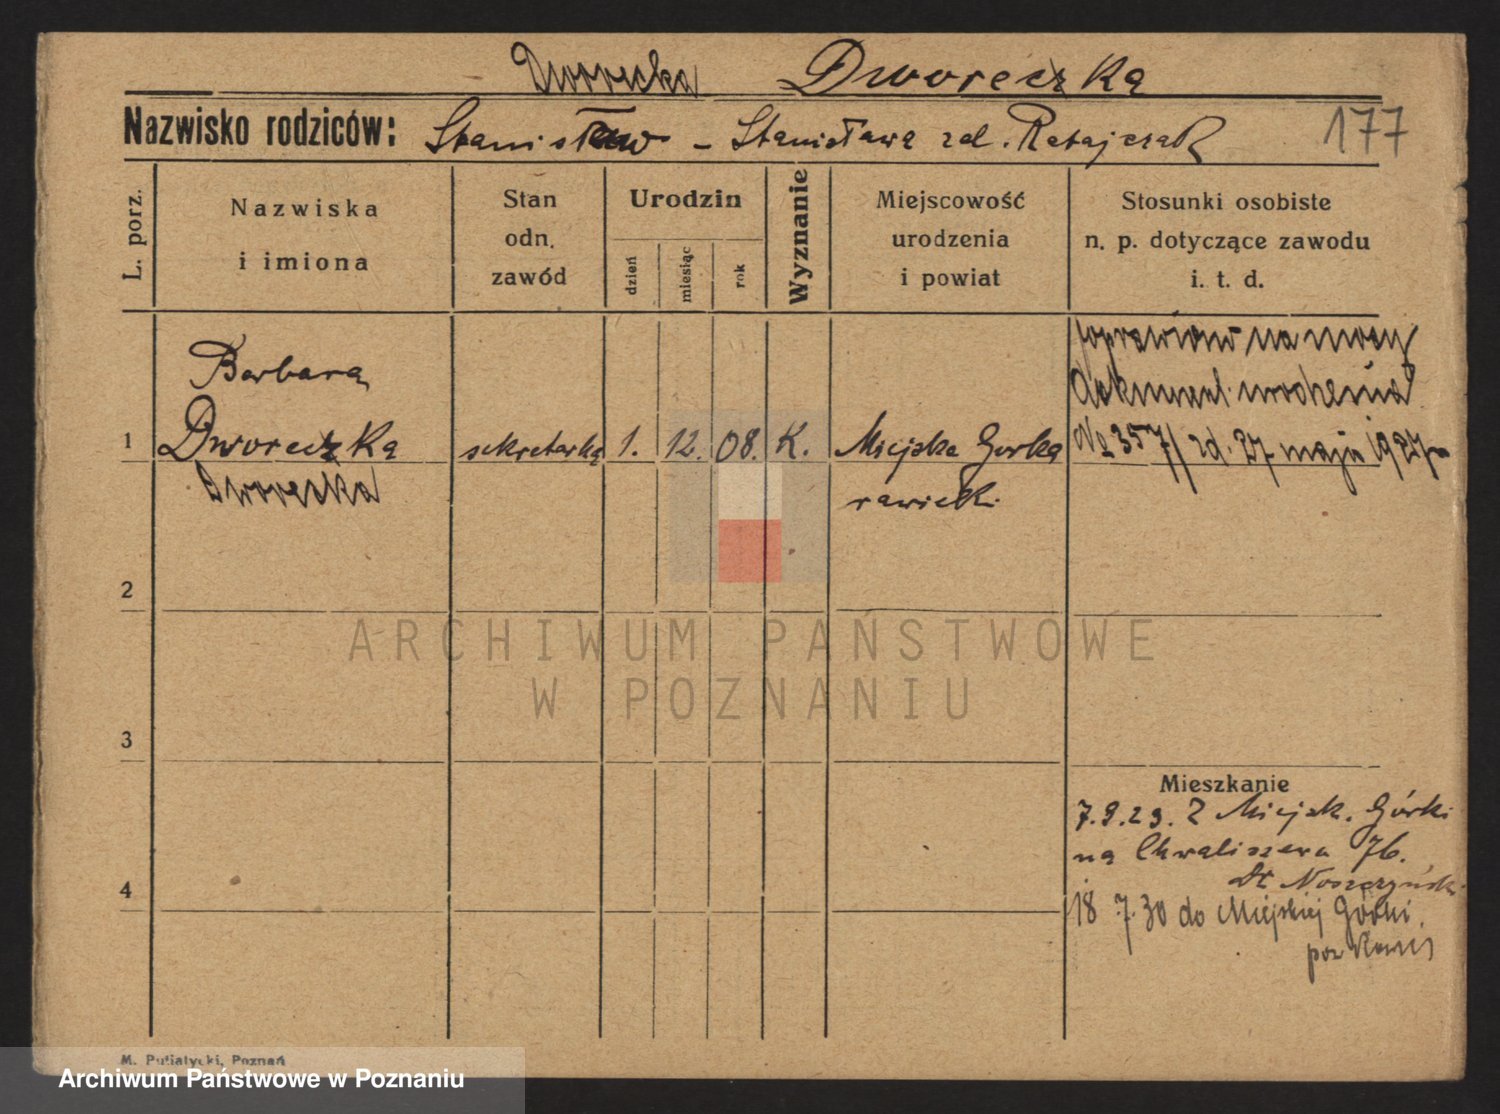 Dworecka Dworeczka
Nazwisko rodziców: Stanisław - Stanisława zd. Ratajczak 177
L. porz.
Nazwiska
i imiona
Stan
odn.
zawód
Urodzin
dzień
miesiąc
rok
Wyznanie
Miejscowość
urodzenia
i powiat
Stosunki osobiste
n. p. dotyczące zawodu
i. t. d.
Barbara
1 Dworeczka sekretarka 1. 12. 08. K. Miejska Gorka
Dworecka
rawicki.
na mocy
urodzenia
No 357/ zd. 27 maja 1927
2
3
4
ARCHIWUM PAŃSTWOWE
W POZNANIU
Mieszkanie
7.9.29. Z Miejsk. Górki
na Chwaliszewo 76.
Dt Noszczyński
18 7.30 do Miejskiej Górki.
pow
M. Putiatycki, Poznań
Archiwum Państwowe w Poznaniu